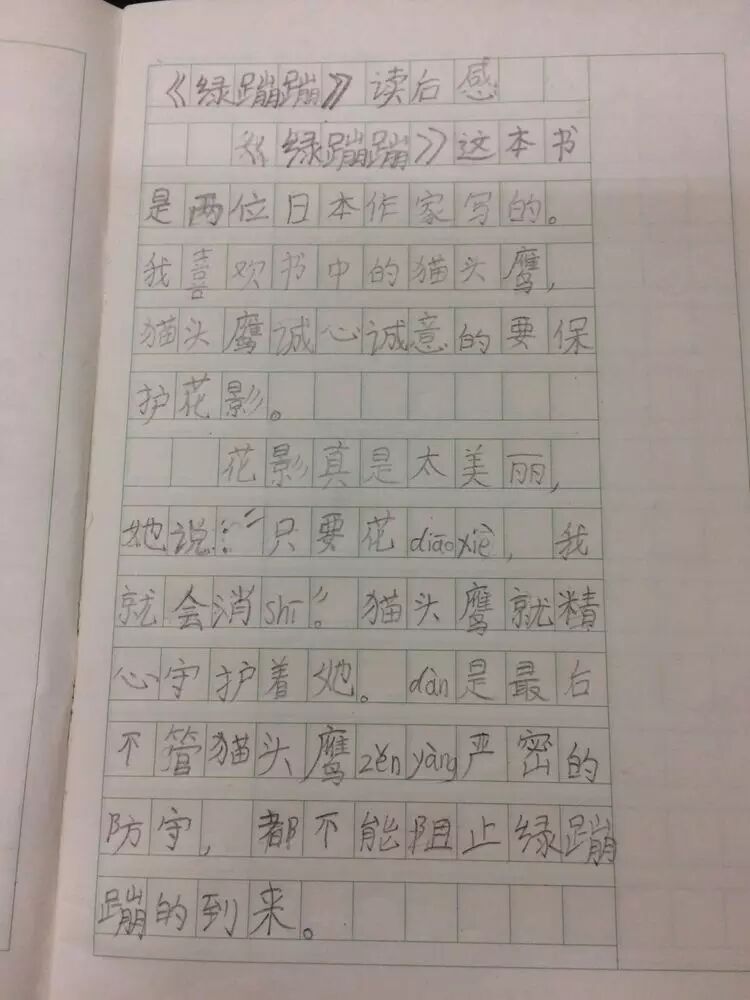 《绿蹦蹦》读后感
《绿蹦蹦》这本书
是两位日本作家写的。
我喜欢书中的猫头鹰，
猫头鹰诚心诚意的要保
护花影。
花影真是太美丽，
她说：“只要花diāoxiè，我
就会消shī”。猫头鹰就精
心守护着她。dàn是最后
不管猫头鹰zěnyàng严密的
防守，都不能阻止绿蹦
蹦的到来。